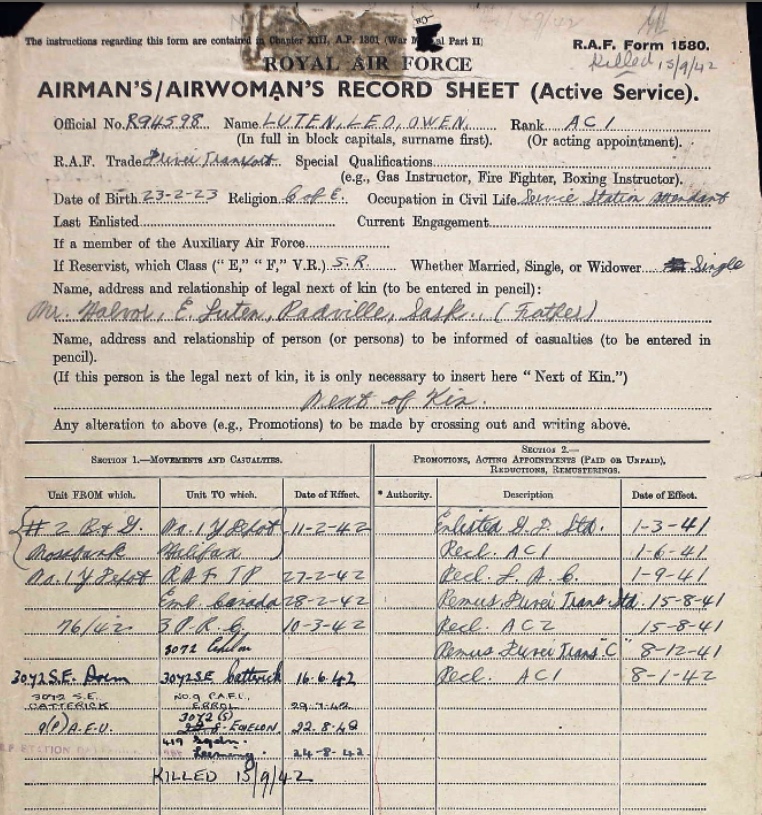 The instructions regarding this form are contained in Chapter XIII, A.P. 1301 (War Manual Part II)
R.A.F. Form 1580.
Killed 15/9/42
ROYAL AIR FORCE
AIRMAN'S/AIRWOMAN'S RECORD SHEET (Active Service).
Official No. R94598 Name LUTEN, LEO, OWEN. Rank AC1
(In full in block capitals, surname first). (Or acting appointment).
R.A.F. Trade Driver Transport Special Qualifications
(e.g., Gas Instructor, Fire Fighter, Boxing Instructor).
Date of Birth 23-2-23 Religion C of E. Occupation in Civil Life Service Station Attendant
Last Enlisted Current Engagement
If a member of the Auxiliary Air Force
If Reservist, which Class ("E," "F," V.R.) S.R. Whether Married, Single, or Widower Single
Name, address and relationship of legal next of kin (to be entered in pencil):
Mr. Halvor, E. Luten, Radville, Sask., (Father)
Name, address and relationship of person (or persons) to be informed of casualties (to be entered in
pencil).
(If this person is the legal next of kin, it is only necessary to insert here "Next of Kin.")
Next of Kin.
Any alteration to above (e.g., Promotions) to be made by crossing out and writing above.
SECTION 1.—MOVEMENTS AND CASUALTIES.
SECTION 2.—
PROMOTIONS, ACTING APPOINTMENTS (PAID OR UNPAID),
REDUCTIONS, REMUSTERINGS.
Unit FROM which. Unit TO which. Date of Effect. * Authority. Description Date of Effect.
#2 B & G. No. 1 Y Depot 11-2-42 Enlisted G.D. Std. 1-3-41
Mossbank Halifax Recl. AC1 1-6-41
No. 1 Y Depot RAF TP 27-2-42 Recl. L.A.C. 1-9-41
Emb. Canada 28-2-42 Remus Driver Trans. Std. 15-8-41
76/42 3 P.R.C. 10-3-42 Recl. AC2 15-8-41
3072 Echelon Remus Driver Trans "C" 8-12-41
3072 S.E. 3072 SE Catterick 16.6.42 Recl. AC1 8-1-42
3072 S.E.
CATTERICK No. 9 P.A.F.U.
ERROL 29.7.42
9(P) A.F.U. 3072 (S)
ECHELON 22.8.42
419 Sqdn.
Leeming. 24-8-42.
KILLED 15/9/42